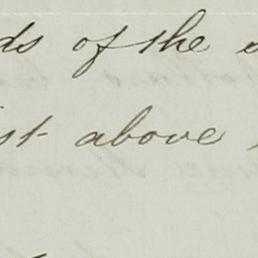 ds of the s
st above